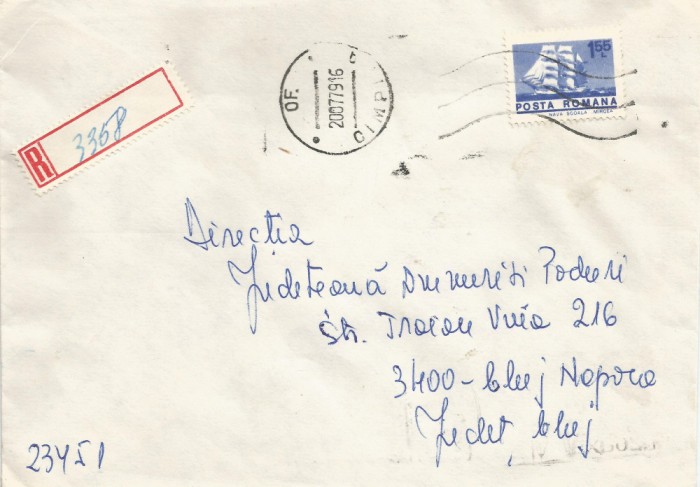 R 3368
OF.
20077916
CIMPI
1,55 L
POSTA ROMANA
NAVA SCOALA MIRCEA
Direcția
Județeană Drumuri și Poduri
Str. Traian Vuia 216
3400 - Cluj Napoca
Județ, Cluj